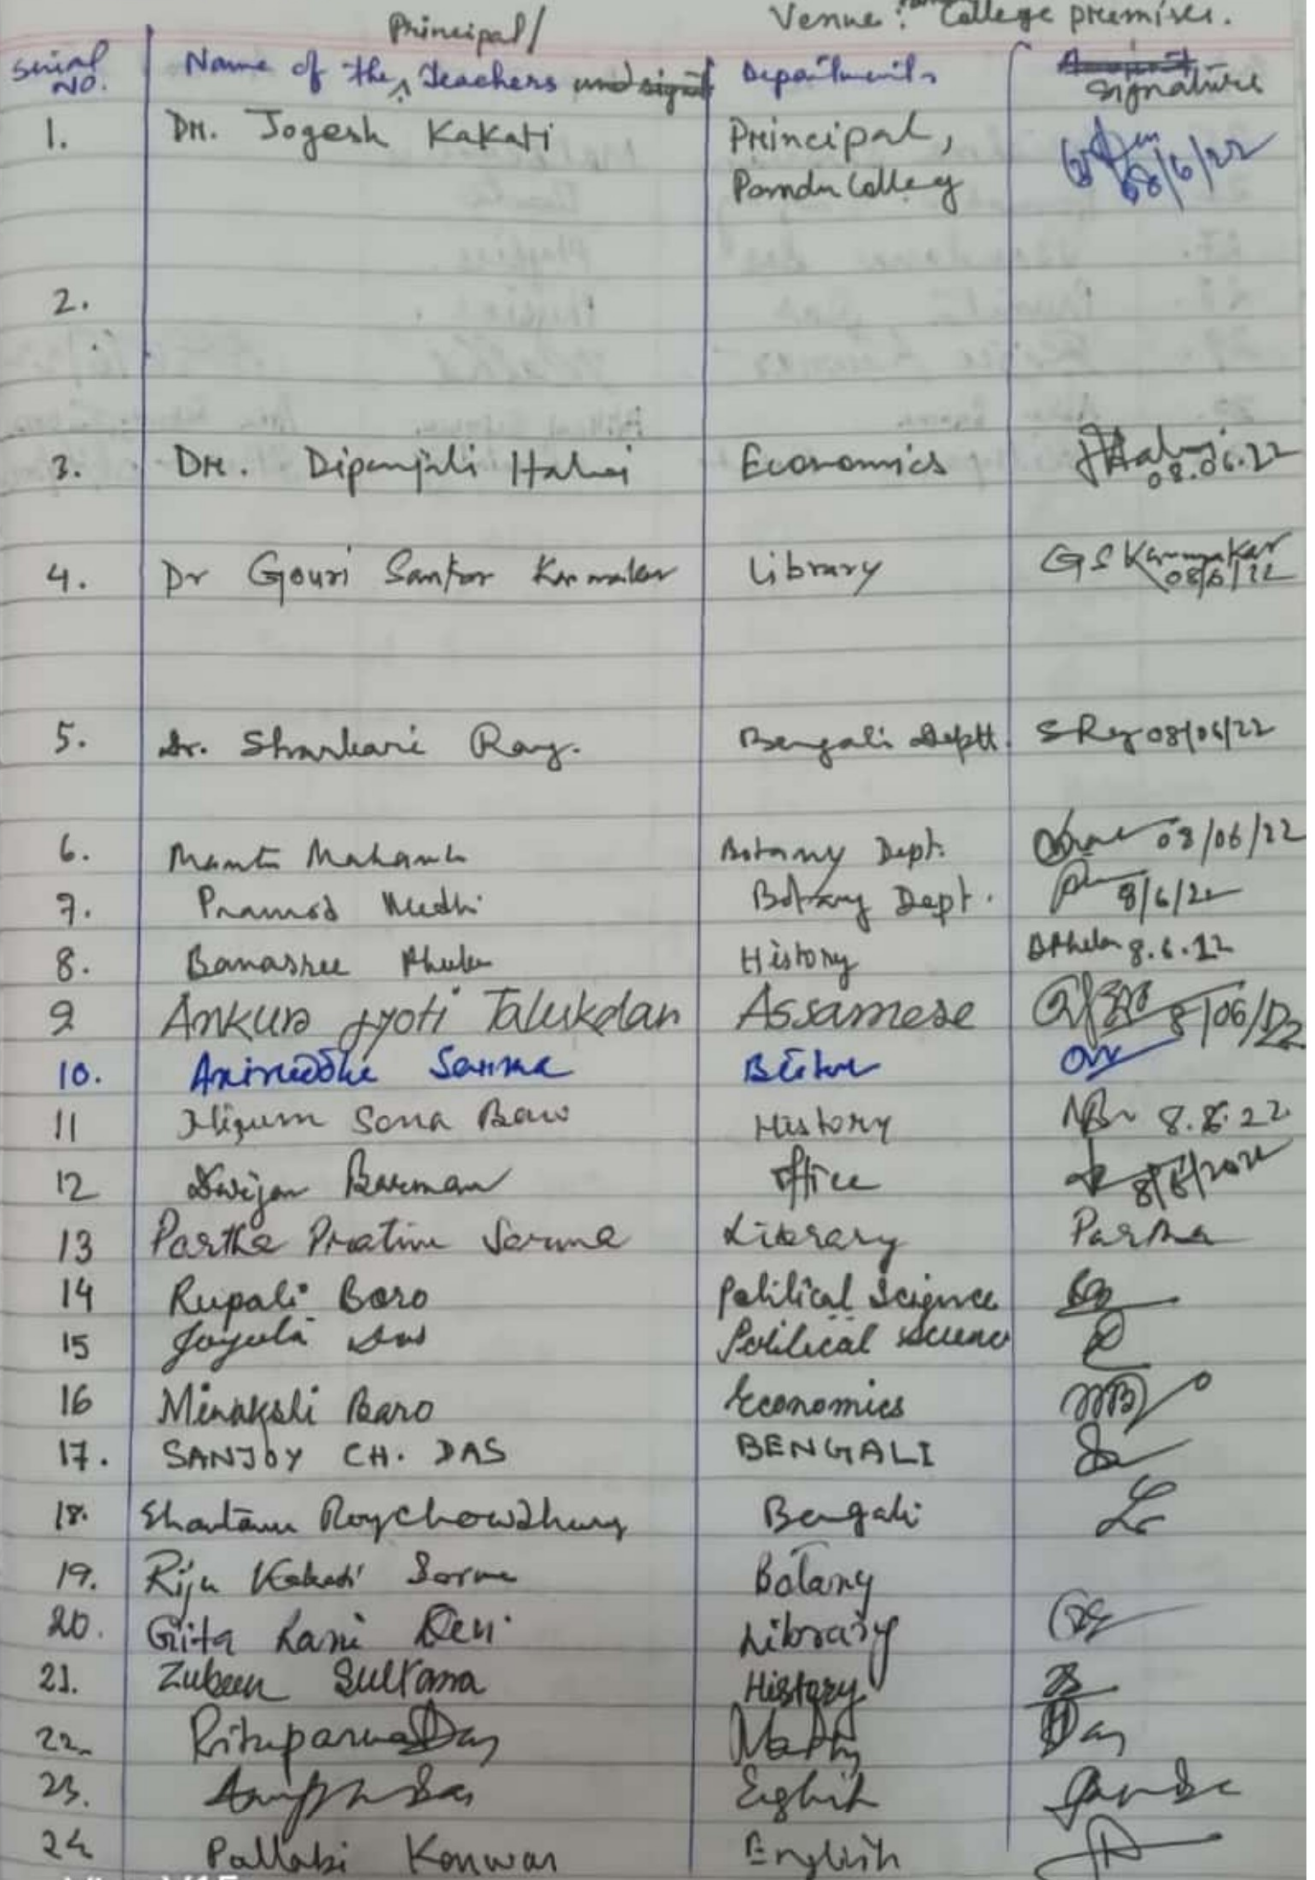 Principal/ Venue: College premises.
Serial No. Name of the Teachers Departments Signature
1. Dr. Jogesh Kakati Principal, 08/6/22
Pandu College
2.
3. Dr. Dipanjali Haloi Economics 08.06.22
4. Dr Gouri Sankar Karmakar Library GS Karmakar
08/6/22
5. Dr. Sharbari Ray. Bengali Deptt. SRay 08/06/22
6. Botany Dept. 08/06/22
7. Pramod Medhi Botany Dept. 8/6/22
8. Banasree Phukan History 8.6.22
9 Ankur Jyoti Talukdar Assamese 8/06/22
10. Aniruddha Sarma
11 Hizum Sona Boro History 8.6.22
12 Dwijen Barman Office 8/6/2022
13 Partha Pratim Sarma Library Partha
14 Rupali Boro Political Science
15 Das Political Science
16 Minakshi Baro Economics
17. SANJOY CH. DAS BENGALI
18. Shantanu Roychowdhury Bengali
19. Riju Kakati Sarma Botany
20. Gita Rani Devi Library
21. Zubeen Sultana History
22. Rituparna Das Das
23. English
24 Pallabi Konwar English